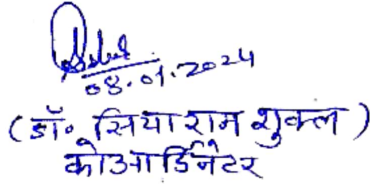 08.01.2024
(डॉ. सियाराम शुक्ल)
कोआर्डिनेटर